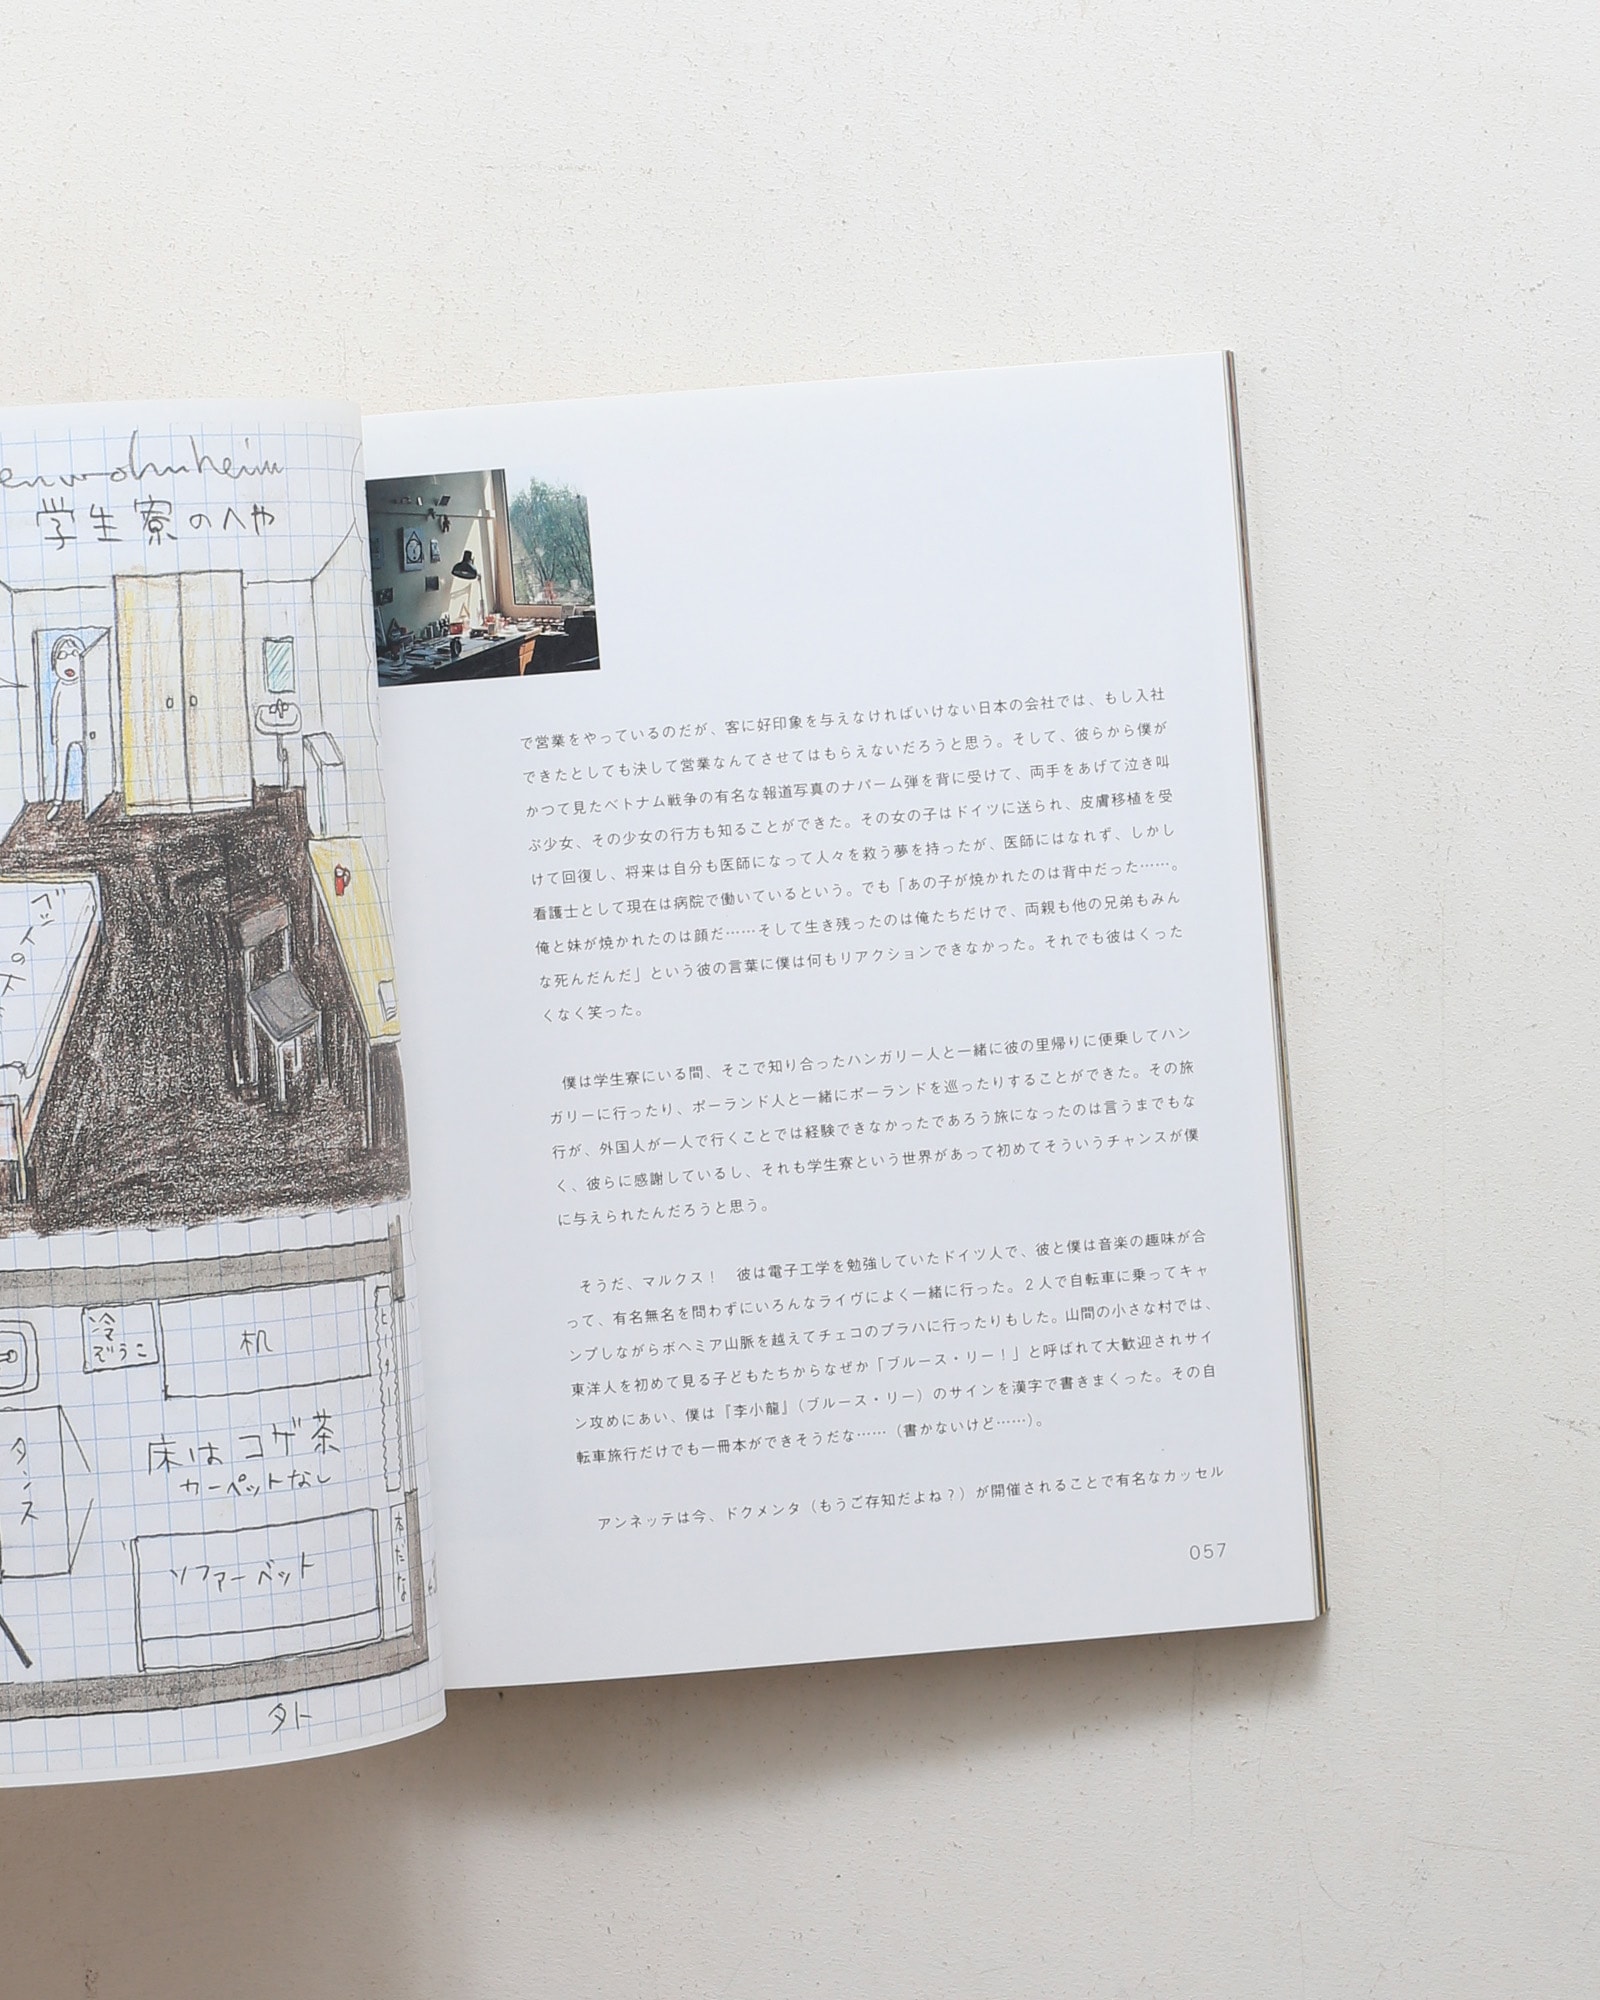 enwohnheim
学生寮のへや
冷
ぞうこ
机
ヒーター
タンス
床は コゲ茶
カーペットなし
ソファーベット
本だな
外
で営業をやっているのだが、客に好印象を与えなければいけない日本の会社では、もし入社
できたとしても決して営業なんてさせてはもらえないだろうと思う。そして、彼らから僕が
かつて見たベトナム戦争の有名な報道写真のナパーム弾を背に受けて、両手をあげて泣き叫
ぶ少女、その少女の行方も知ることができた。その女の子はドイツに送られ、皮膚移植を受
けて回復し、将来は自分も医師になって人々を救う夢を持ったが、医師にはなれず、しかし
看護士として現在は病院で働いているという。でも「あの子が焼かれたのは背中だった……。
俺と妹が焼かれたのは顔だ……そして生き残ったのは俺たちだけで、両親も他の兄弟もみん
な死んだんだ」という彼の言葉に僕は何もリアクションできなかった。それでも彼はくった
くなく笑った。
僕は学生寮にいる間、そこで知り合ったハンガリー人と一緒に彼の里帰りに便乗してハン
ガリーに行ったり、ポーランド人と一緒にポーランドを巡ったりすることができた。その旅
行が、外国人が一人で行くことでは経験できなかったであろう旅になったのは言うまでもな
く、彼らに感謝しているし、それも学生寮という世界があって初めてそういうチャンスが僕
に与えられたんだろうと思う。
そうだ、マルクス！　彼は電子工学を勉強していたドイツ人で、彼と僕は音楽の趣味が合
って、有名無名を問わずにいろんなライヴによく一緒に行った。２人で自転車に乗ってキャ
ンプしながらボヘミア山脈を越えてチェコのプラハに行ったりもした。山間の小さな村では、
東洋人を初めて見る子どもたちからなぜか「ブルース・リー！」と呼ばれて大歓迎されサイ
ン攻めにあい、僕は『李小龍』（ブルース・リー）のサインを漢字で書きまくった。その自
転車旅行だけでも一冊本ができそうだな……（書かないけど……）。
アンネッテは今、ドクメンタ（もうご存知だよね？）が開催されることで有名なカッセル
057